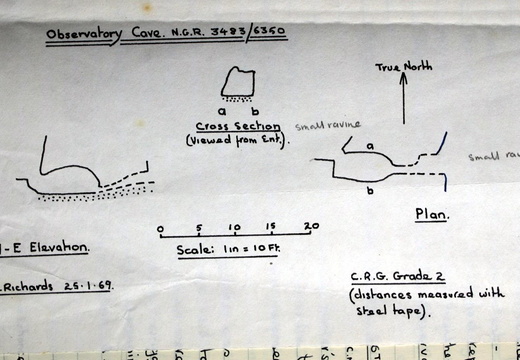 Observatory Cave. N.G.R. 3483/6350
True North
a b
Cross Section
(Viewed from Ent.).
small ravine
a
b
Plan.
-E Elevation.
0 5 10 15 20
Scale: 1in = 10 Ft.
.Richards 25.1.69.
C.R.G. Grade 2
(distances measured with
steel tape).